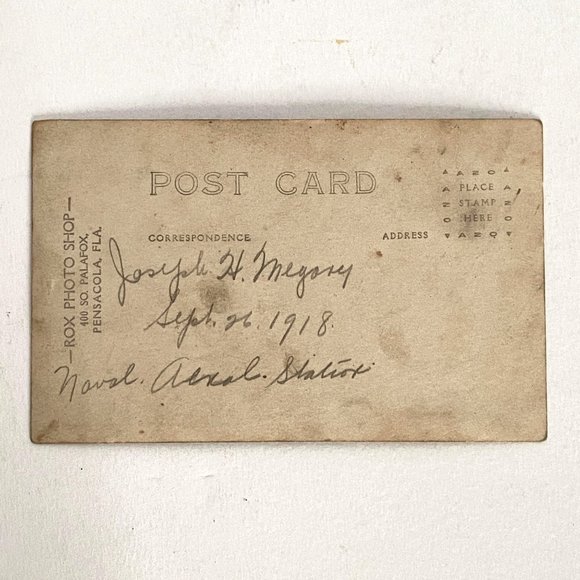 POST CARD
CORRESPONDENCE
ADDRESS
AZO
PLACE
STAMP
HERE
AZO
AZO
AZO
—ROX PHOTO SHOP—
400 SO. PALAFOX,
PENSACOLA, FLA.
Joseph. H. Megary
Sept. 26. 1918.
Naval. Aeral. Station